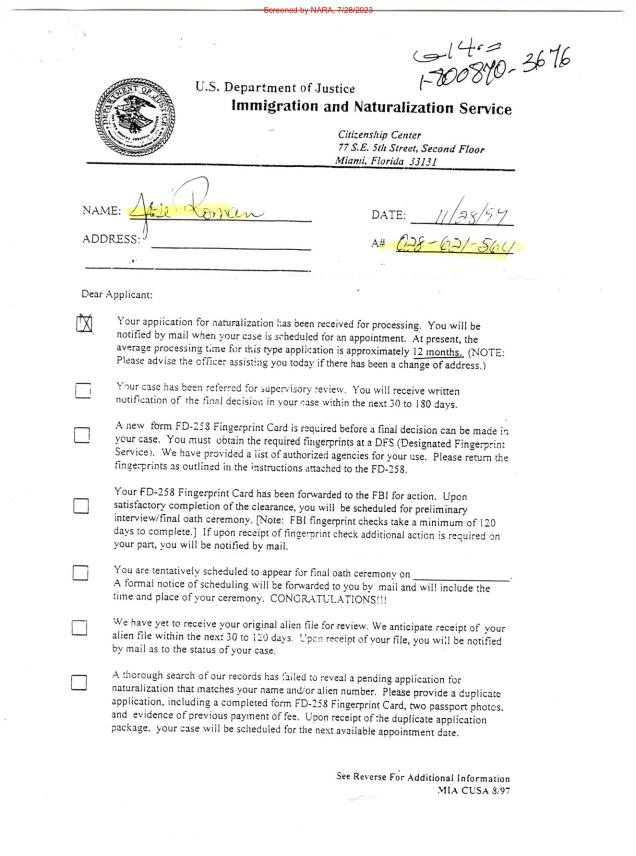 Screened by NARA, 7/28/2023
1-800870-3676
U.S. Department of Justice
Immigration and Naturalization Service
Citizenship Center
77 S.E. 5th Street, Second Floor
Miami, Florida 33131
NAME: Jose Roman
DATE: 11/28/97
ADDRESS:
A# 028-621-564
Dear Applicant:
Your application for naturalization has been received for processing. You will be
notified by mail when your case is scheduled for an appointment. At present, the
average processing time for this type application is approximately 12 months. (NOTE:
Please advise the officer assisting you today if there has been a change of address.)
Your case has been referred for supervisory review. You will receive written
notification of the final decision in your case within the next 30 to 180 days.
A new form FD-258 Fingerprint Card is required before a final decision can be made in
your case. You must obtain the required fingerprints at a DFS (Designated Fingerprint
Service). We have provided a list of authorized agencies for your use. Please return the
fingerprints as outlined in the instructions attached to the FD-258.
Your FD-258 Fingerprint Card has been forwarded to the FBI for action. Upon
satisfactory completion of the clearance, you will be scheduled for preliminary
interview/final oath ceremony. [Note: FBI fingerprint checks take a minimum of 120
days to complete.] If upon receipt of fingerprint check additional action is required on
your part, you will be notified by mail.
You are tentatively scheduled to appear for final oath ceremony on
A formal notice of scheduling will be forwarded to you by mail and will include the
time and place of your ceremony. CONGRATULATIONS!!!
We have yet to receive your original alien file for review. We anticipate receipt of your
alien file within the next 30 to 120 days. Upon receipt of your file, you will be notified
by mail as to the status of your case.
A thorough search of our records has failed to reveal a pending application for
naturalization that matches your name and/or alien number. Please provide a duplicate
application, including a completed form FD-258 Fingerprint Card, two passport photos,
and evidence of previous payment of fee. Upon receipt of the duplicate application
package, your case will be scheduled for the next available appointment date.
See Reverse For Additional Information
MIA CUSA 8/97